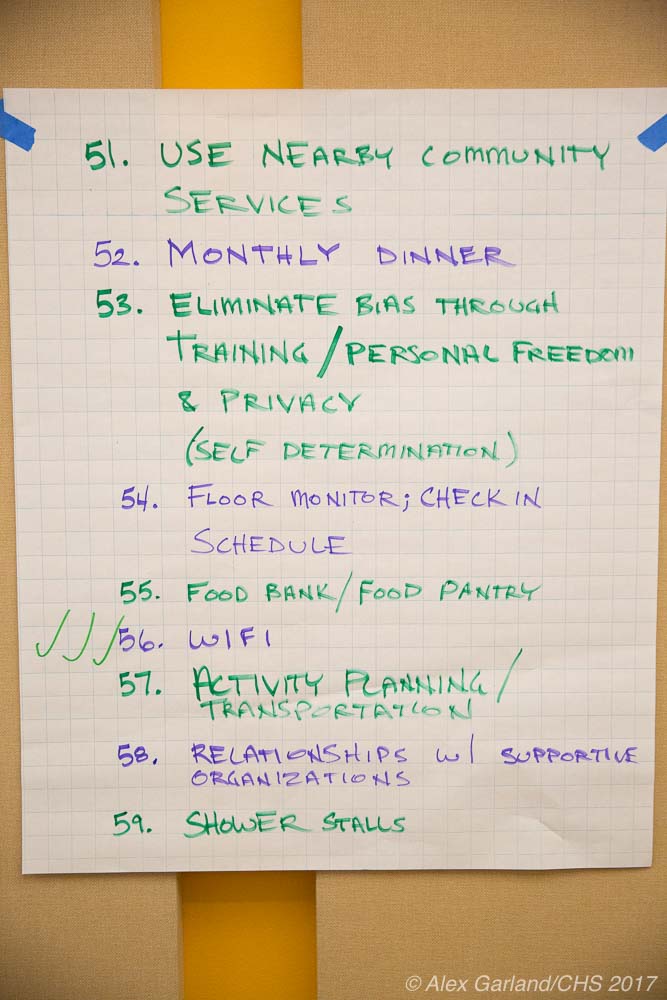 51. USE NEARBY COMMUNITY
SERVICES
52. MONTHLY DINNER
53. ELIMINATE BIAS THROUGH
TRAINING / PERSONAL FREEDOM
& PRIVACY
(SELF DETERMINATION)
54. FLOOR MONITOR; CHECK IN
SCHEDULE
55. FOOD BANK/FOOD PANTRY
✓✓✓56. WIFI
57. ACTIVITY PLANNING/
TRANSPORTATION
58. RELATIONSHIPS W/ SUPPORTIVE
ORGANIZATIONS
59. SHOWER STALLS
© Alex Garland/CHS 2017